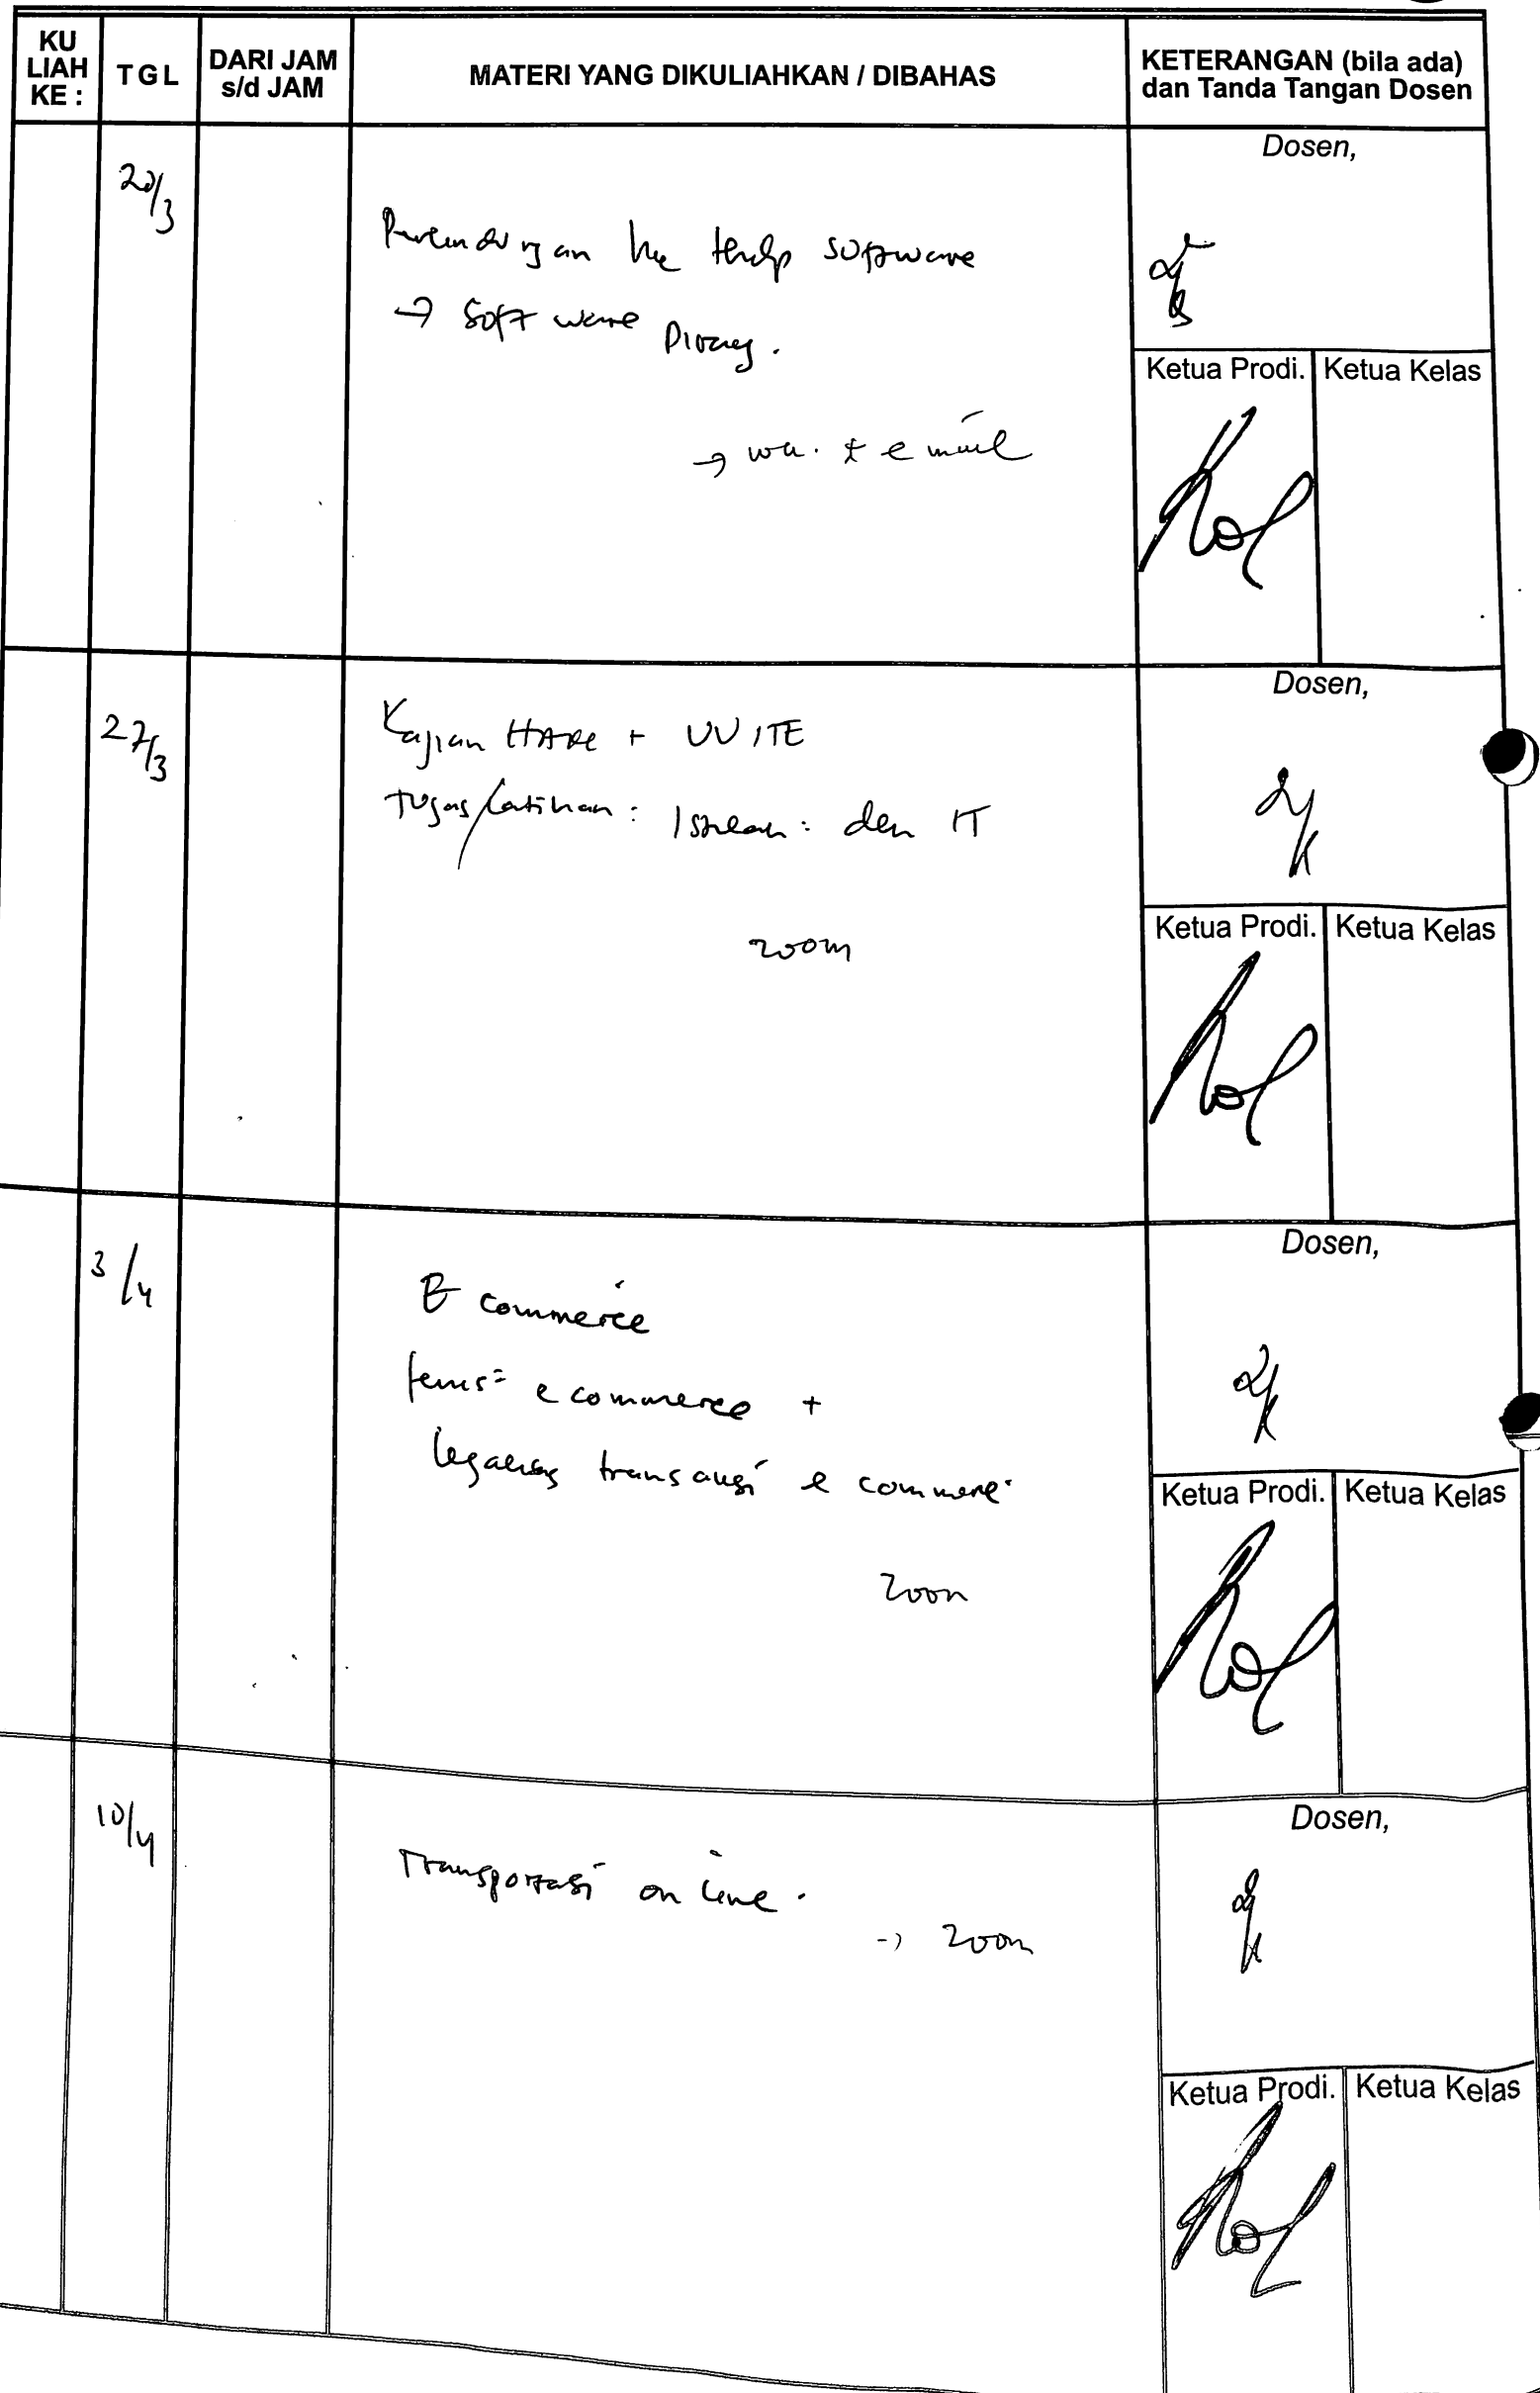 KU
LIAH
KE :
TGL
DARI JAM
s/d JAM
MATERI YANG DIKULIAHKAN / DIBAHAS
KETERANGAN (bila ada)
dan Tanda Tangan Dosen
20/3
software
→ Software Piracy.
→ wa. + email
Dosen,
Ketua Prodi.
Ketua Kelas
27/3
Kajian + UU ITE
Tugas/Latihan : IT
zoom
Dosen,
Ketua Prodi.
Ketua Kelas
3/4
E commerce
Jenis² e commerce +
legalitas transaksi e commerc
zoom
Dosen,
Ketua Prodi.
Ketua Kelas
10/4
Transportasi on line .
→ zoom
Dosen,
Ketua Prodi.
Ketua Kelas